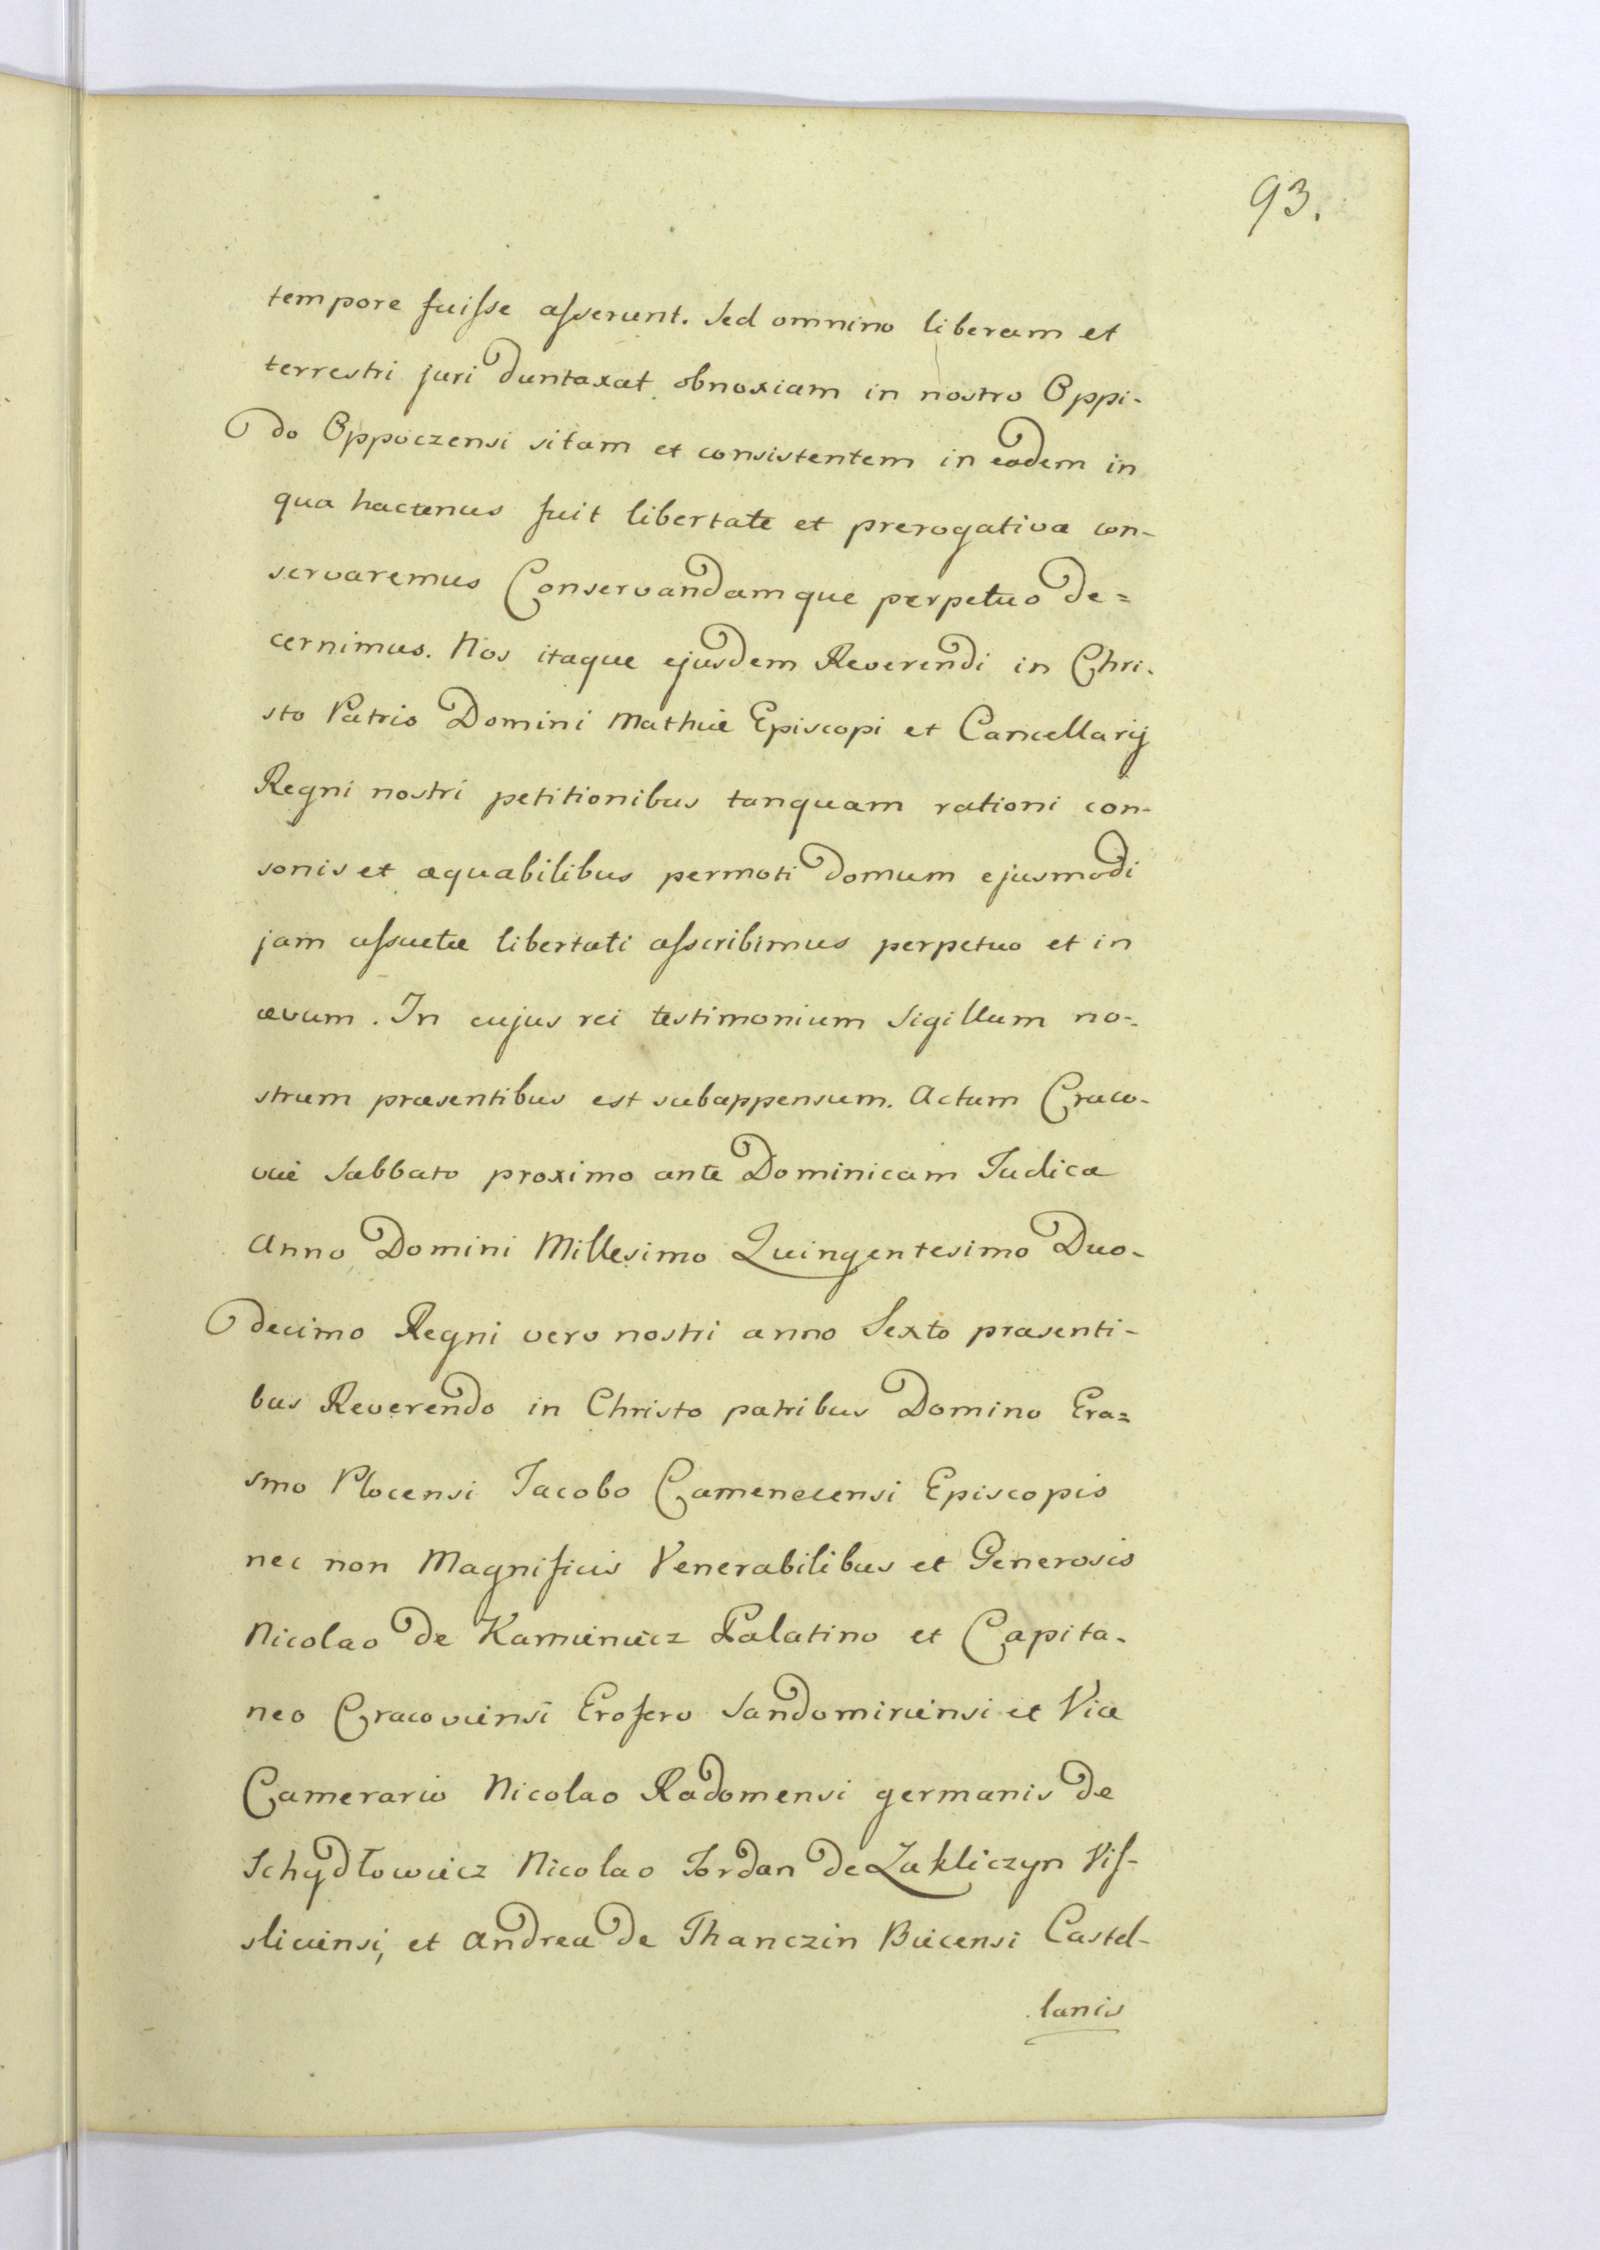 93.
tempore fuisse asserunt. Sed omnino liberam et
terrestri juri duntaxat obnoxiam in nostro Oppi-
do Oppoczensi sitam et consistentem in eadem in
qua hactenus fuit libertate et prerogativa con-
servaremus Conservandamque perpetuo de=
cernimus. Nos itaque ejusdem Reverendi in Chri-
sto Patris Domini Mathiæ Episcopi et Cancellarij
Regni nostri petitionibus tanquam rationi con-
sonis et æquabilibus permoti Domum ejusmodi
jam assuetæ libertati asscribimus perpetuo et in
ævum. In cujus rei testimonium Sigillum no-
strum præsentibus est subappensum. Actum Craco-
viæ Sabbato proximo ante Dominicam Judica
Anno Domini Millesimo Quingentesimo Duo-
decimo Regni vero nostri anno Sexto præsenti-
bus Reverendo in Christo patribus Domino Era=
smo Plocensi Jacobo Camenecensi Episcopis
nec non Magnificis Venerabilibus et Generosis
Nicolao de Kamieniecz Palatino et Capita-
neo Cracoviensi Sandomiriensi et Vice
Camerario Nicolao Radomensi germanis de
Schydłowiecz Nicolao Jordan de Zakliczyn Vis-
sliciensi, et Andrea de Thanczin Biecensi Castel-
lanis